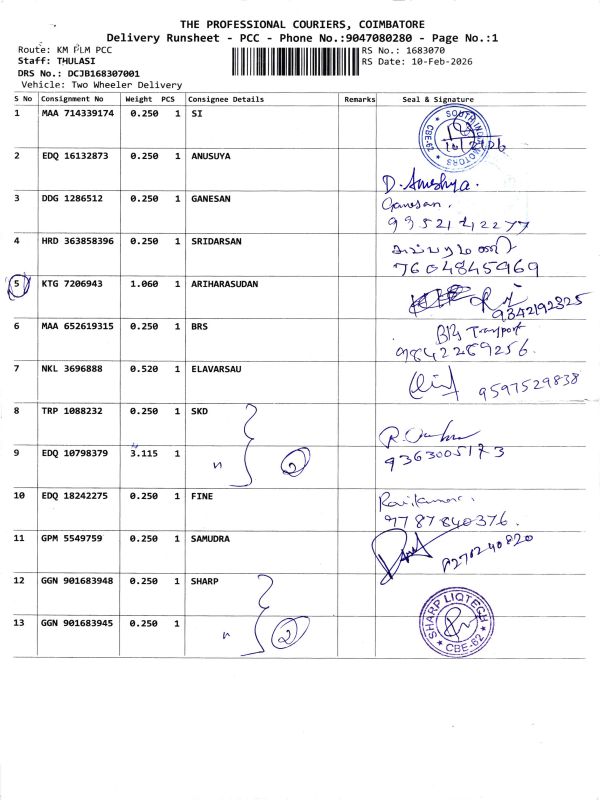 THE PROFESSIONAL COURIERS, COIMBATORE
Delivery Runsheet - PCC - Phone No.:9047080280 - Page No.:1
Route: KM PLM PCC
RS No.: 1683070
Staff: THULASI
RS Date: 10-Feb-2026
DRS No.: DCJB168307001
Vehicle: Two Wheeler Delivery
S No Consignment No Weight PCS Consignee Details Remarks Seal & Signature
1 MAA 714339174 0.250 1 SI
SOUTH INDIA MOTORS CBE-62
2 EDQ 16132873 0.250 1 ANUSUYA
D. Anushya.
3 DDG 1286512 0.250 1 GANESAN Ganesan.
9952142277
4 HRD 363858396 0.250 1 SRIDARSAN
7604845969
5 KTG 7206943 1.060 1 ARIHARASUDAN
9342192325
6 MAA 652619315 0.250 1 BRS BRS Transport
9842289256.
7 NKL 3696888 0.520 1 ELAVARSAU
9597529838
8 TRP 1088232 0.250 1 SKD
9 EDQ 10798379 3.115 1 " 2
9363005173
10 EDQ 18242275 0.250 1 FINE Ravikumar.
9787840376.
11 GPM 5549759 0.250 1 SAMUDRA
12 GGN 901683948 0.250 1 SHARP
SHARP LIQTECH CBE-62
13 GGN 901683945 0.250 1 " 2